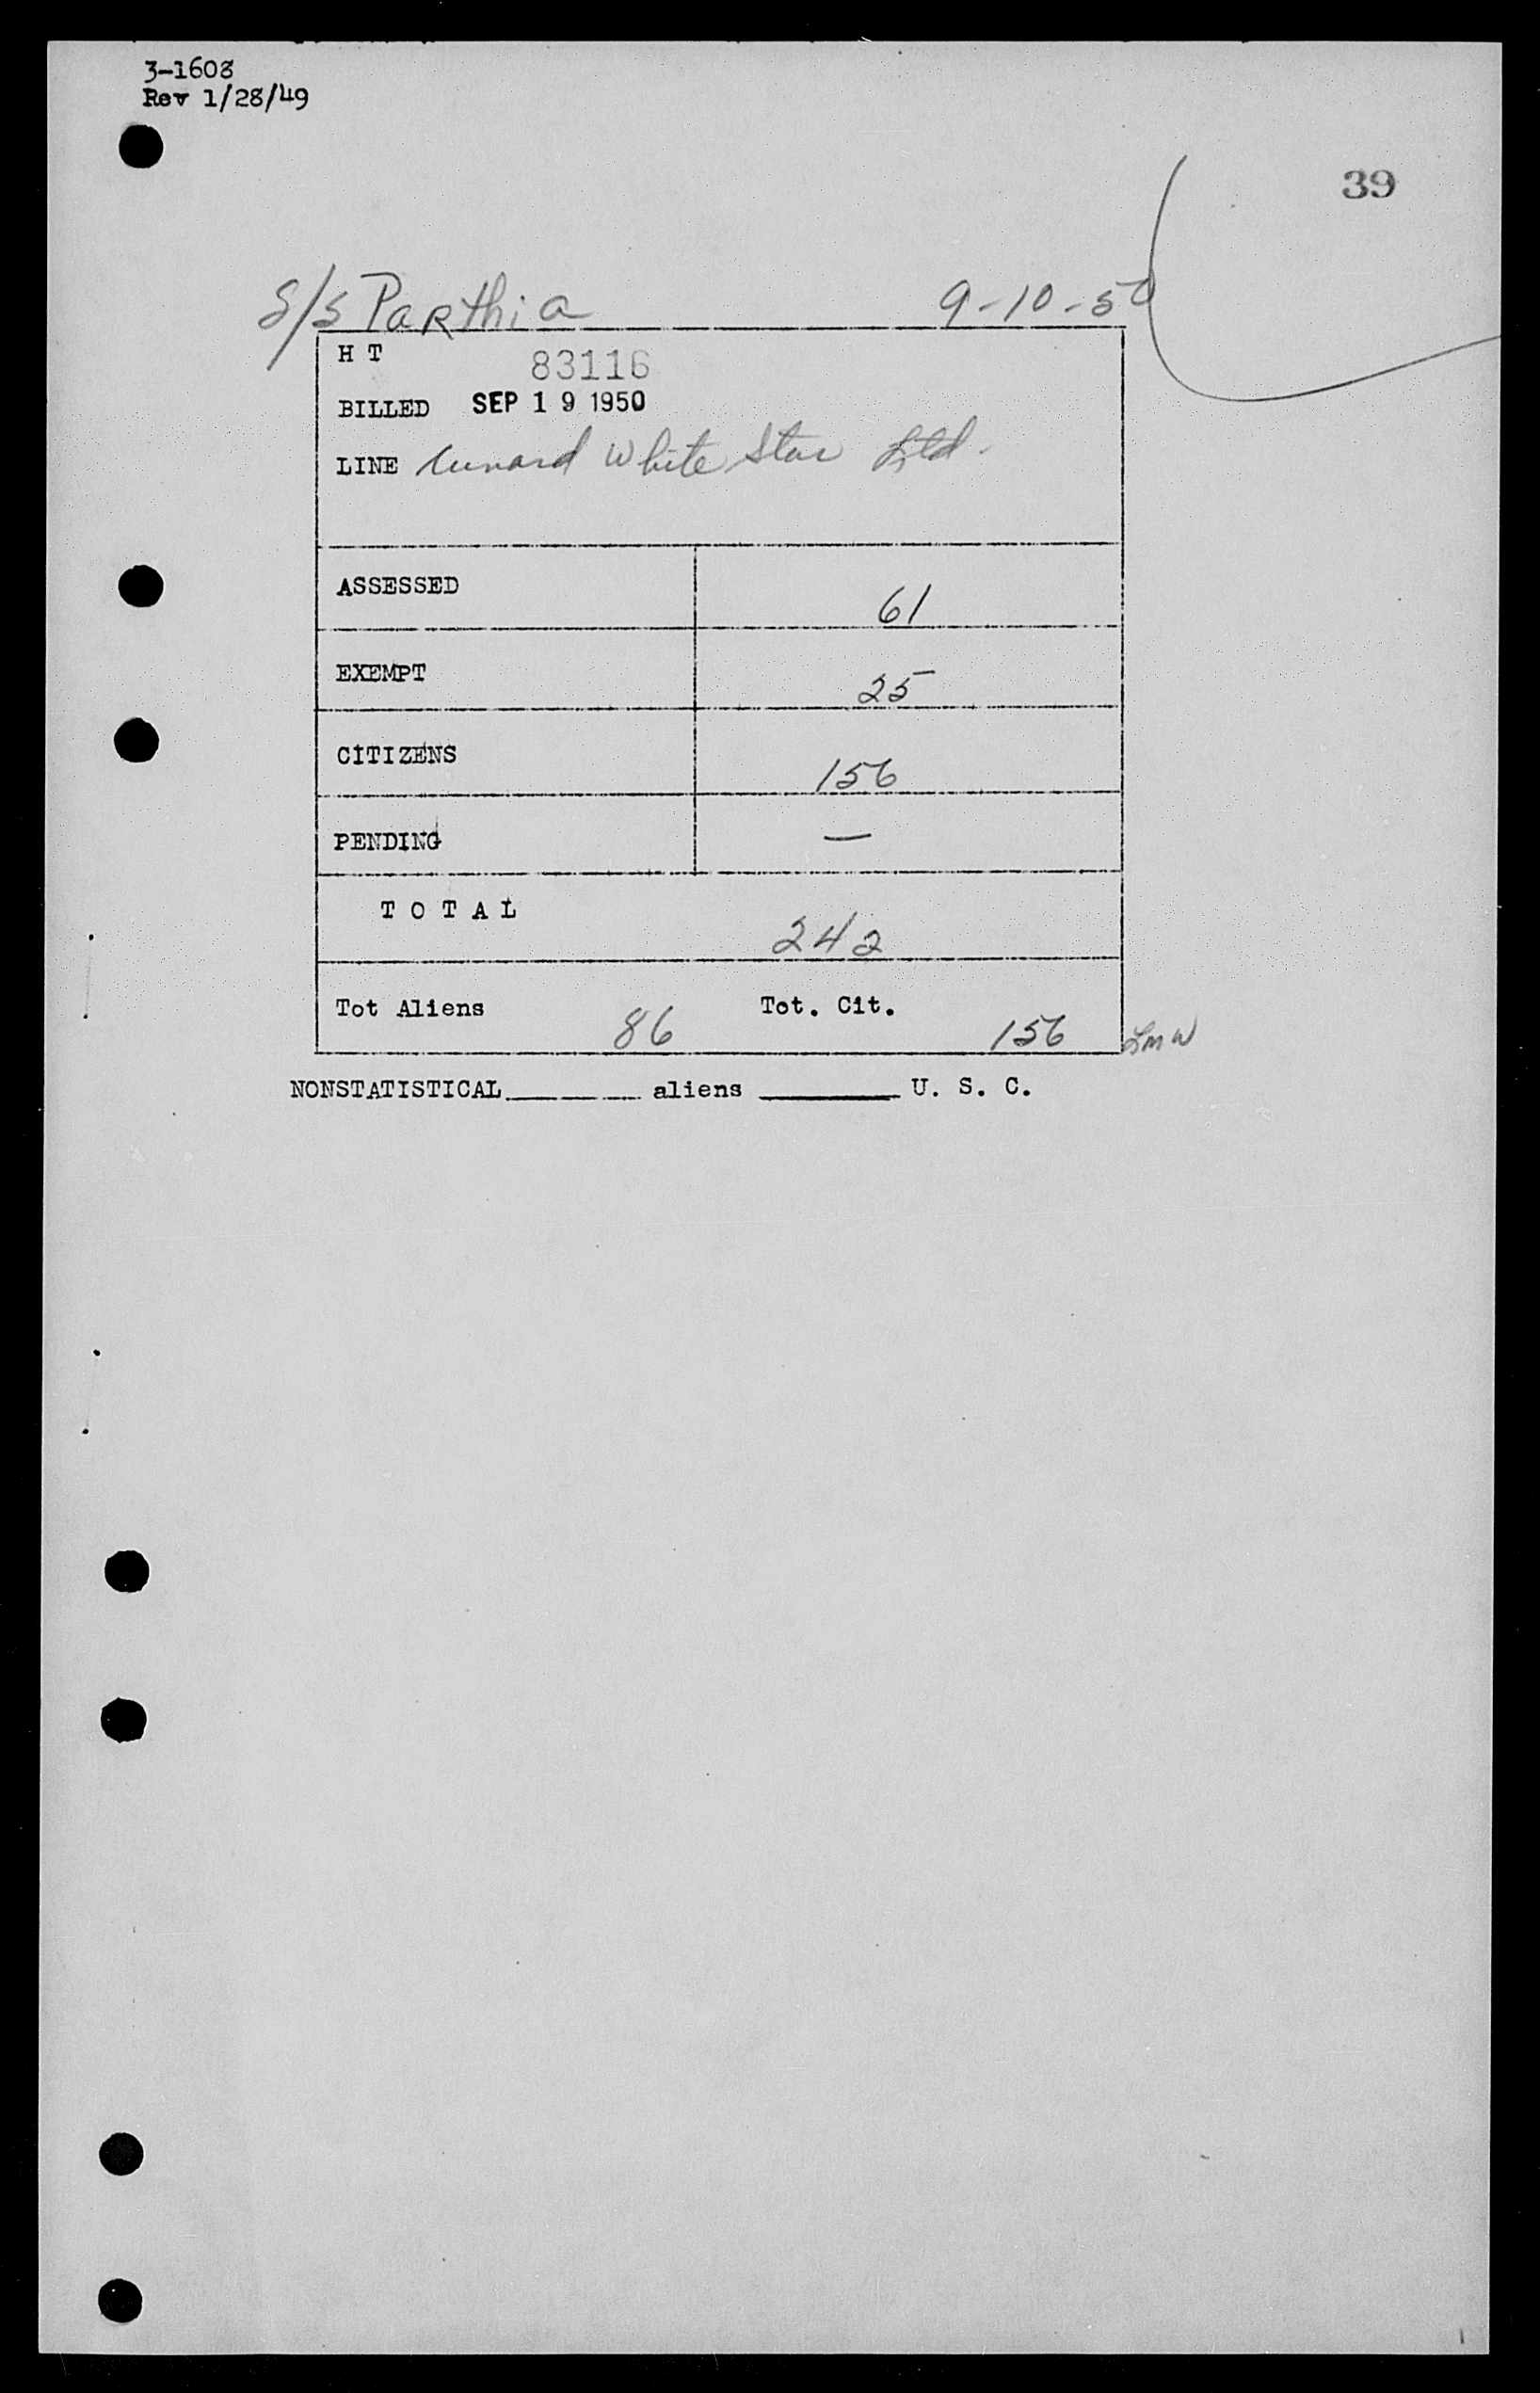 3-1608
Rev 1/28/49
39
S/S Parthia 9-10-50
H T 83116
BILLED SEP 19 1950
LINE Cunard White Star Ltd.
ASSESSED 61
EXEMPT 25
CITIZENS 156
PENDING —
TOTAL 242
Tot Aliens 86 Tot. Cit. 156 LMW
NONSTATISTICAL ______ aliens ______ U. S. C.